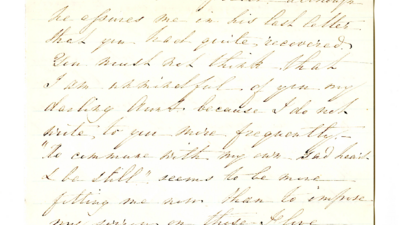 he assures me in his last letter
that you had quite recovered.
You must not think that
I am unmindful of you my
darling Aunt because I do not
write to you more frequently.—
"To commune with my own heart
& be still" seems to be more
fitting me now than to impose
my sorrow on those I love